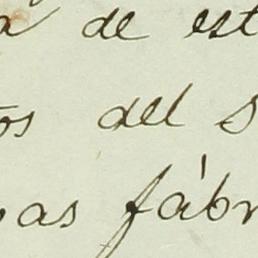 a de est
os del s
as fábr